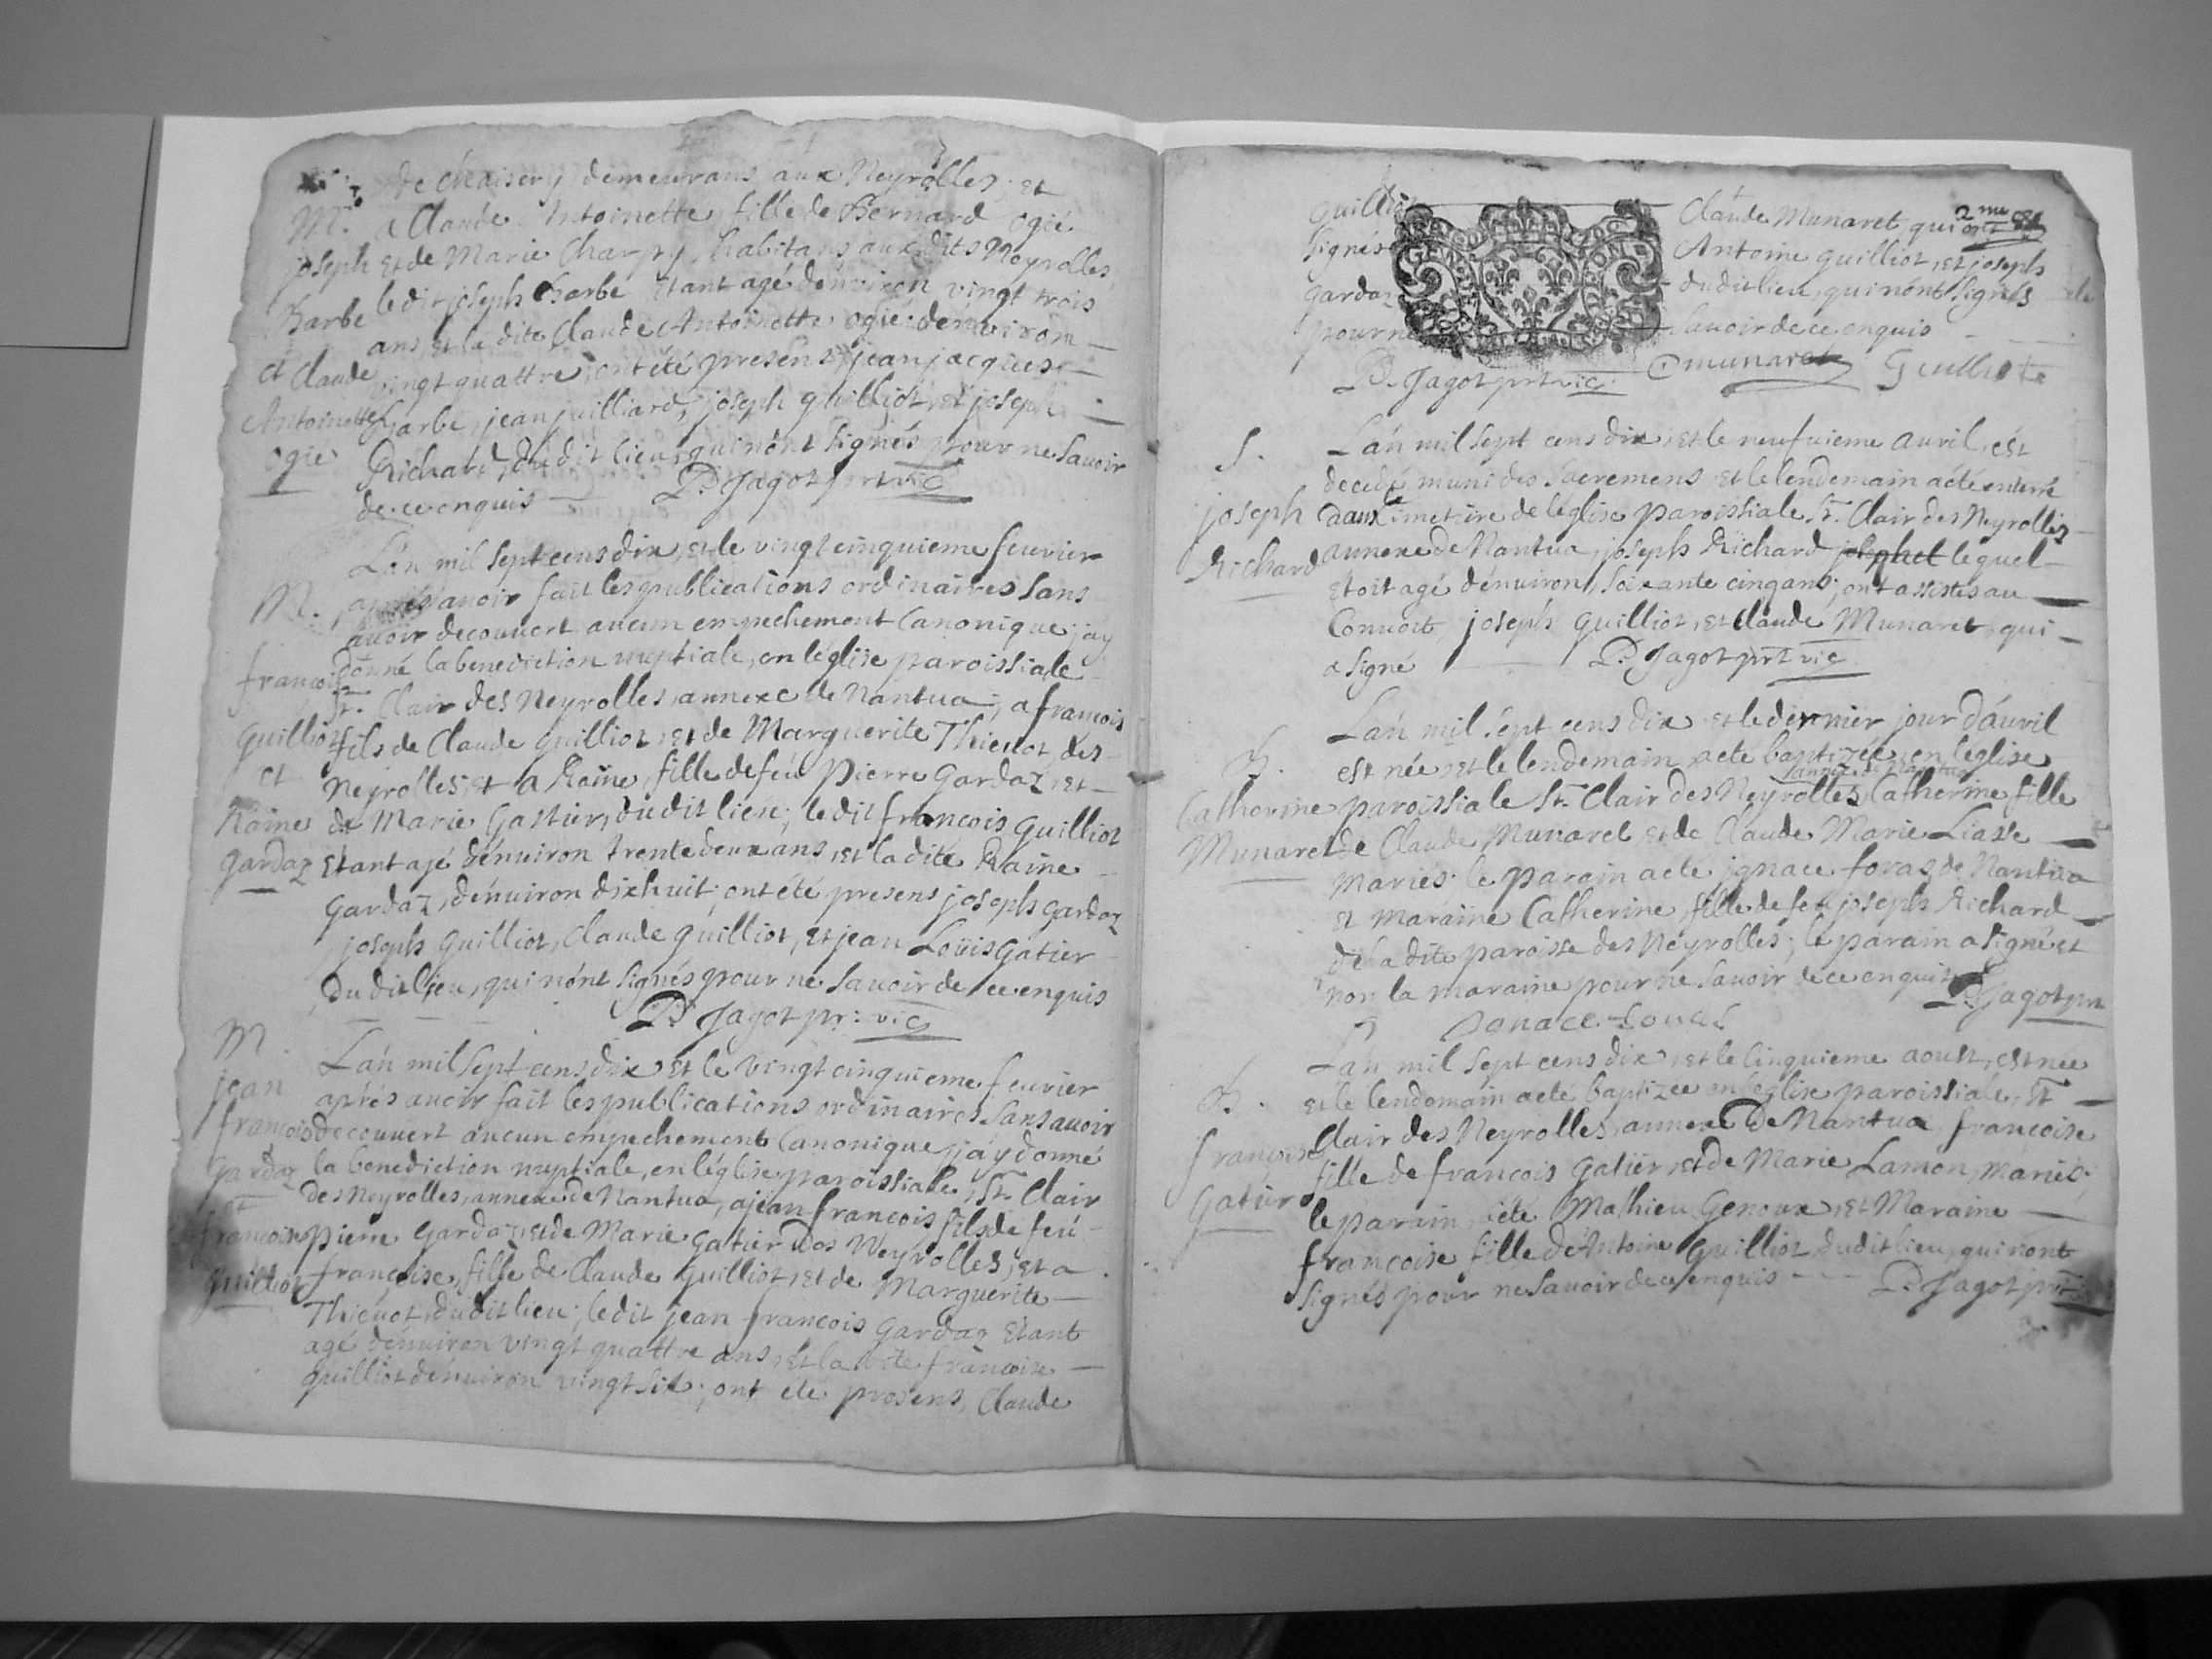 de chaisery demeurans aux Neyrolles; et
M. a Claude Antoinette fille de Bernard ogié
joseph et de Marie Charpy, habitans auxdits Neyrolles,
Barbe ledit joseph Barbe étant agé d'énviron vingt trois
ans et la dite Claude Antoinette ogié d'environ —
et Claude vingt quattre; ont été presens, jean jacques —
Antoinette Barbe, jean juilliard, joseph guilliot, et joseph —
ogié Richard, dudit lieu, qui n'ont signés pour ne savoir
de ce enquis — P. Jagot prt vic
L'an mil sept cens dix, et le vingt cinquieme feuvrier
M. après auoir fait les publications ordinaires sans
auoir decouuert aucun empechement Canonique j'ay
francois donné la benediction nuptiale, en l'église paroissiale
St. Clair des Neyrolles, annexe de Nantua, a francois
guilliot fils de Claude guilliot, et de Marguerite Thieuot, des
et Neyrolles, et a Raine, fille de feu Pierre Gardaz, et —
Raine de Marie Gattier, dudit lieu; ledit francois guilliot
gardaz étant agé d'énuiron trente deux ans, et la dite Raine
Gardaz, d'énuiron dixhuit; ont été presens joseph gardaz
joseph guilliot, Claude guilliot, et jean Loüis gatier
dudit lieu, qui n'ont signés pour ne sauoir de ce enquis
P. Jagot pr: vic
M. L'an mil sept cens dix et le vingt cinquieme feuvrier
jean après auoir fait les publications ordinaires sans auoir
francois decouuert aucun empechement Canonique, j'ay donné
gardaz la benediction nuptiale, en l'église paroissiale, St. Clair
et des Neyrolles, annexe de Nantua, a jean francois fils de feu
francoise pierre gardaz, et de Marie gatier des Neyrolles, et a
guilliot francoise, fille de Claude guilliot, et de Marguerite —
Thieuot, dudit lieu; ledit jean francois gardaz étant
agé d'énuiron vingt quattre ans, et la dite francoise —
guilliot d'énuiron vingt six; ont été presens, Claude
guilliot Claude Munaret qui ont 2me
signés Antoine guilliot, et joseph
gardaz dudit lieu, qui n'ont signés
pour ne sauoir de ce enquis —
P. Jagot prt vic. C munaret Guilliot
GEN DE
S. L'an mil sept cens dix, et le neufuieme auril, est
decedé muni des sacremens et le lendemain a été enterré
joseph dans le cimetiere de l'église paroissiale St. Clair des Neyrolles
Richard annexe de Nantua, joseph Richard josephet lequel —
étoit agé d'énuiron, soixante cinq ans; ont assistés au —
Conuoit joseph guilliot, et Claude Munaret, qui —
a signé P. Jagot prt vic
L'an mil sept cens dix et le dernier jour d'auril
B. est née et le lendemain a été baptizée en l'église
annexe de Nantua
Catherine paroissiale St. Clair des Neyrolles, Catherine fille
Munaret de Claude Munaret et de Claude Marie Liasse —
mariés; le parain a été ignace foras, de Nantua
et maraine Catherine, fille de feu joseph Richard —
de la dite paroisse des Neyrolles; le parain a signé et
non la maraine pour ne sauoir de ce enquise P. Jagot prt
Ignace foras
L'an mil sept cens dix, et le cinquieme aoust, est née
B. et le lendemain a été baptizée en l'église paroissiale, St —
francoise Clair des Neyrolles, annexe de Nantua, francoise
fille de francois Gatiër, et de Marie Lamon, mariés;
Gatier le parain a été Mathieu Genoux, et Maraine —
francoise fille d'Antoine guilliot, dudit lieu, qui n'ont
signés pour ne sauoir de ce enquis - - - P. Jagot prt